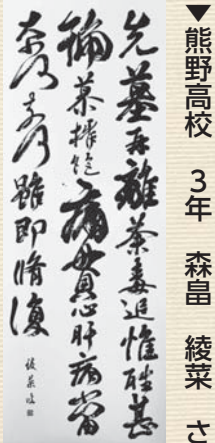 ▼熊野高校 3年 森畠 綾菜 さ
先墓再離荼毒追惟酷甚
號慕摧絶痛貫心肝痛當
奈何奈何雖即脩復
綾菜臨